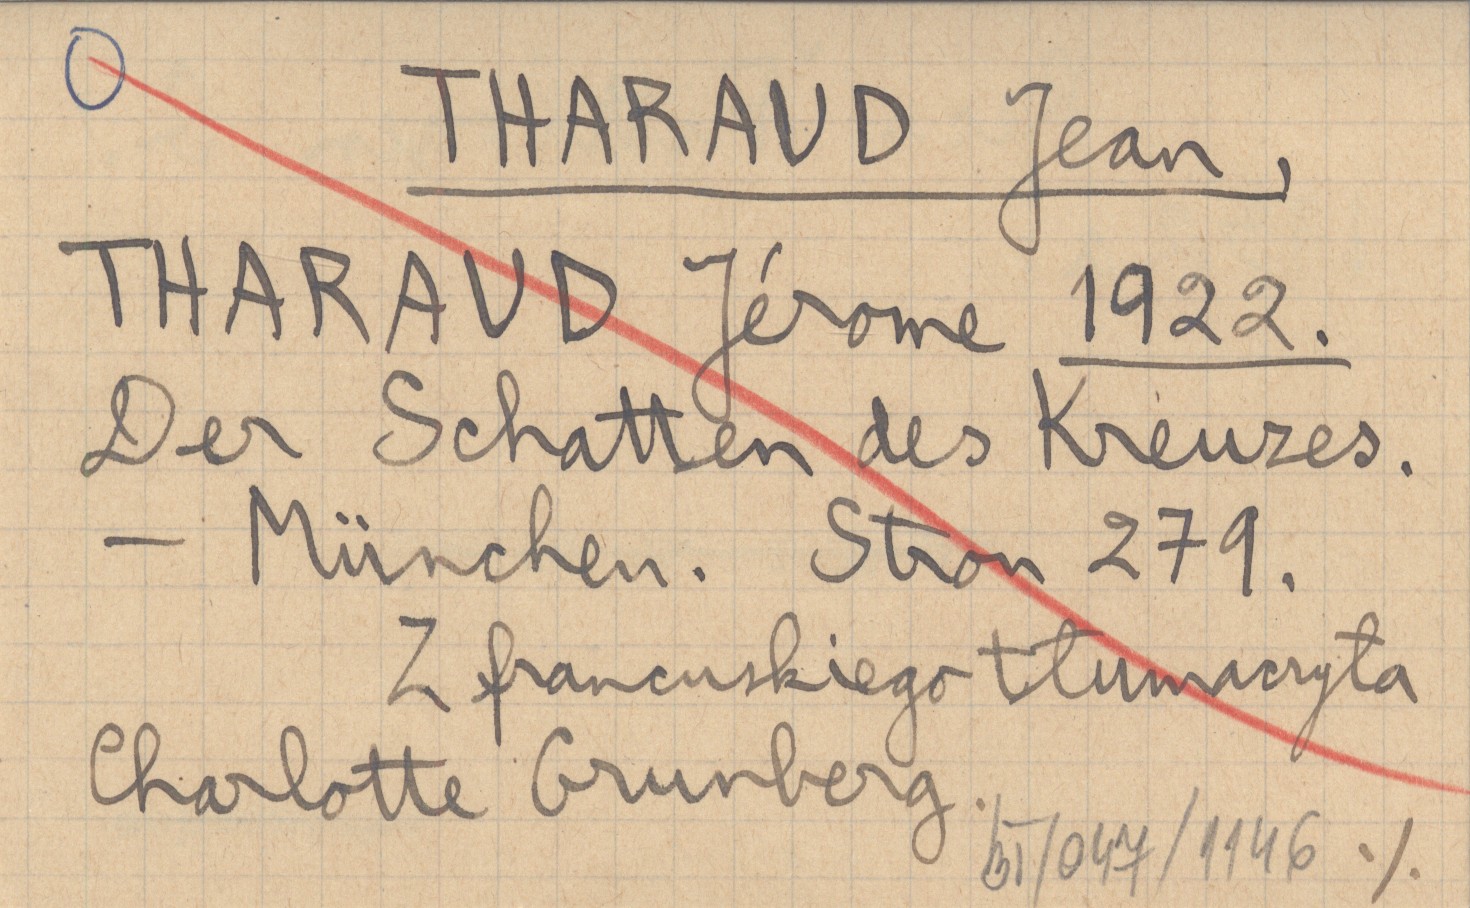 THARAUD Jean,
THARAUD Jérome 1922.
Der Schatten des Kreuzes.
- München. Stron 279.
Z francuskiego tłumaczyła
Charlotte Grunberg.
/047/1146 ./.